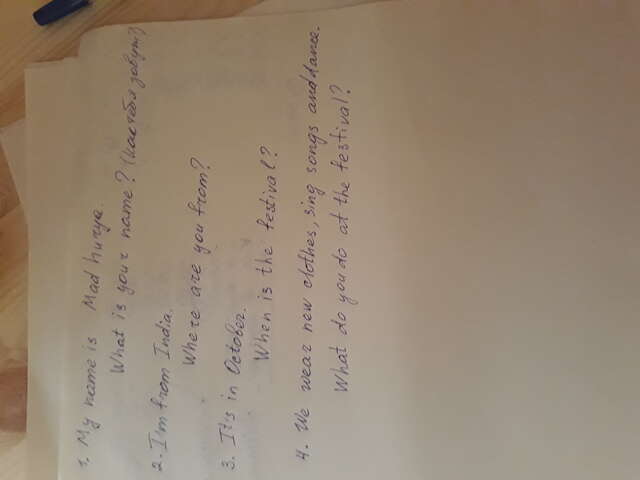 1. My name is Madhurya.
What is your name? (как тебя зовут?)
2. I'm from India.
Where are you from?
3. It's in October.
When is the festival?
4. We wear new clothes, sing songs and dance.
What do you do at the festival?